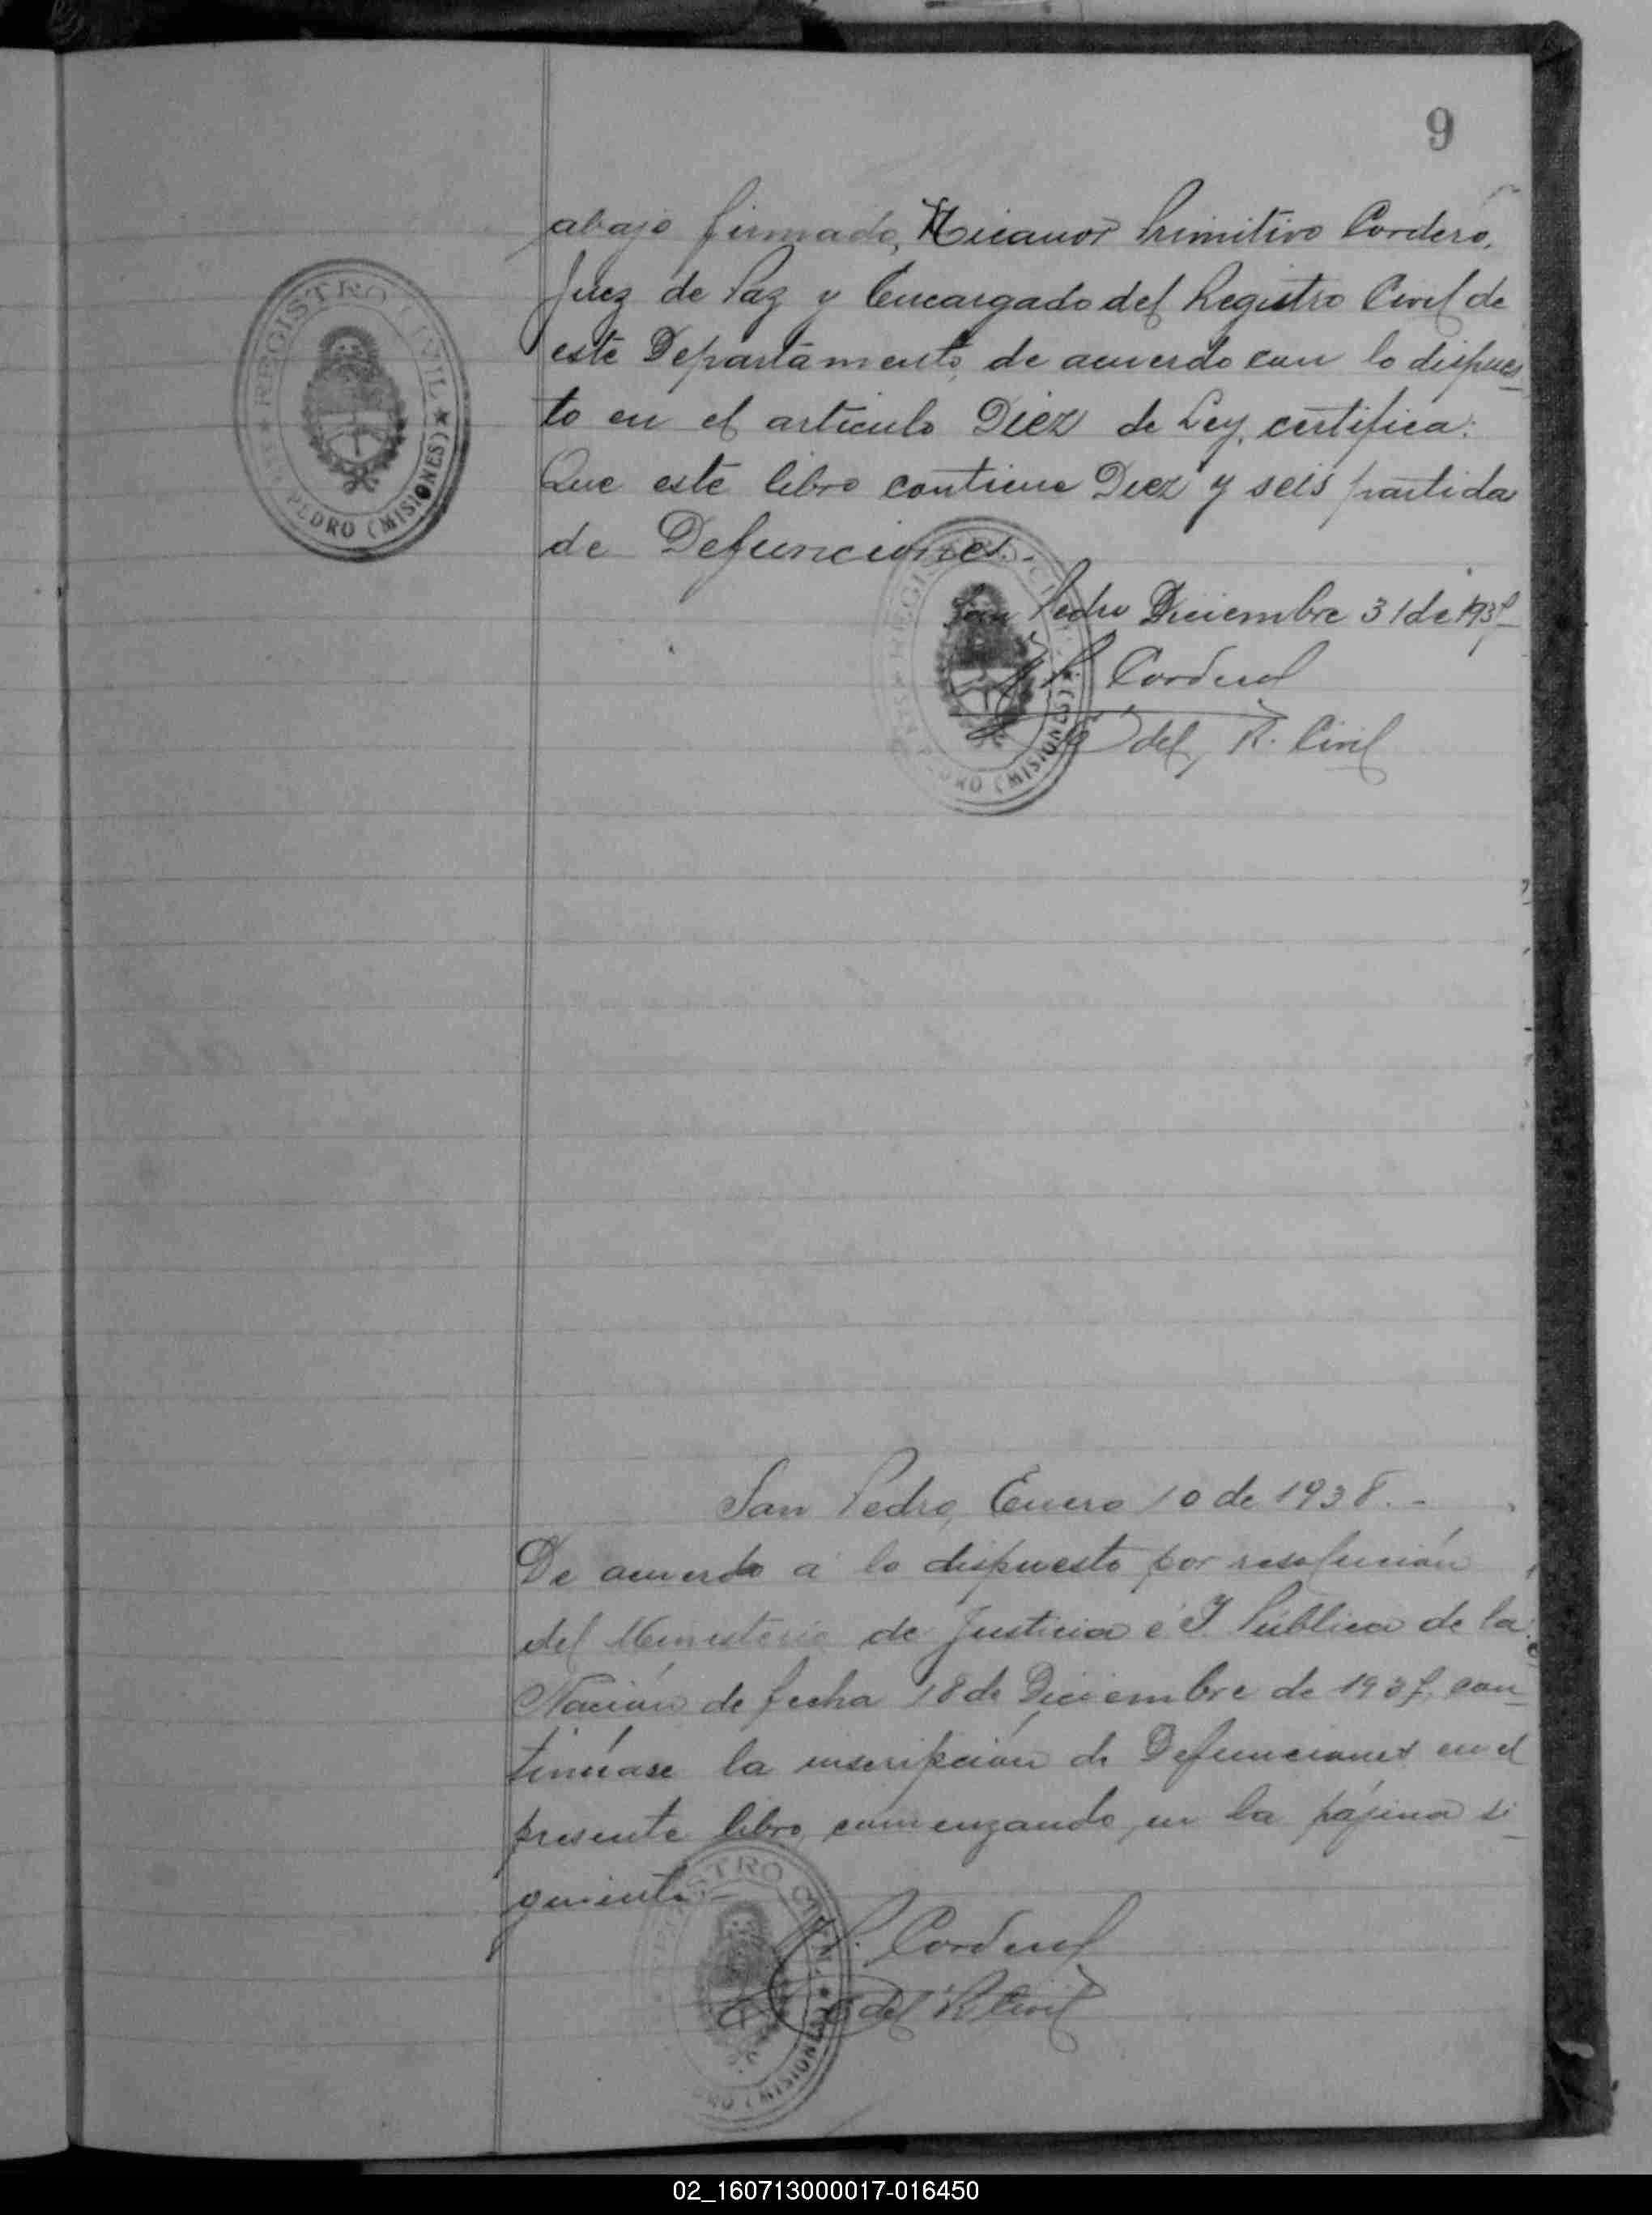 9
abajo firmado, Nicanor Primitivo Cordero,
Juez de Paz y Encargado del Registro Civil de
este Departamento, de acuerdo con lo dispues
to en el artículo Diez de Ley, certifica:
Que este libro contiene Diez y seis partida
de Defunciones.-
San Pedro Diciembre 31 de 1937
P. Cordero
E. del R. Civil
REGISTRO CIVIL
SAN PEDRO (MISIONES)
San Pedro, Enero 10 de 1938.-
De acuerdo a lo dispuesto por resolución
del Ministerio de Justicia é I. Pública de la
Nación de fecha 18 de Diciembre de 1937, con-
tinúase la inscripción de Defunciones en el
presente libro, comenzando, en la página si-
guiente.-
P. Cordero
E del R. Civil
02_160713000017-016450